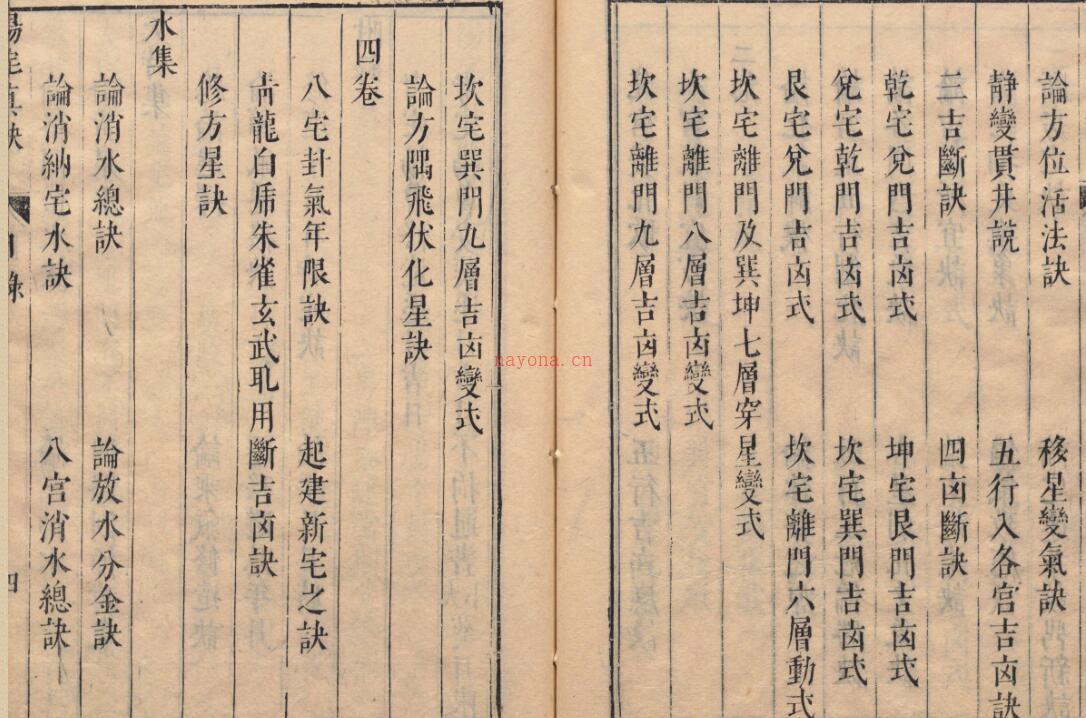 論方位活法訣 移星變氣訣
静變貫井說 五行入各宫吉凶訣
三吉斷訣 四凶斷訣
乾宅兌門吉凶式 坤宅艮門吉凶式
兌宅乾門吉凶式 坎宅巽門吉凶式
艮宅兌門吉凶式 坎宅離門六層動式
坎宅離門及巽坤七層穿星變式
坎宅離門八層吉凶變式
坎宅離門九層吉凶變式
坎宅巽門九層吉凶變式
論方隅飛伏化星訣
四卷
八宅卦氣年限訣 起建新宅之訣
青龍白虎朱雀玄武耴用斷吉凶訣
修方星訣
水集
論消水總訣 論放水分金訣
論消納宅水訣 八宫消水總訣
陽宅真訣 目錄 四
nayona.cn